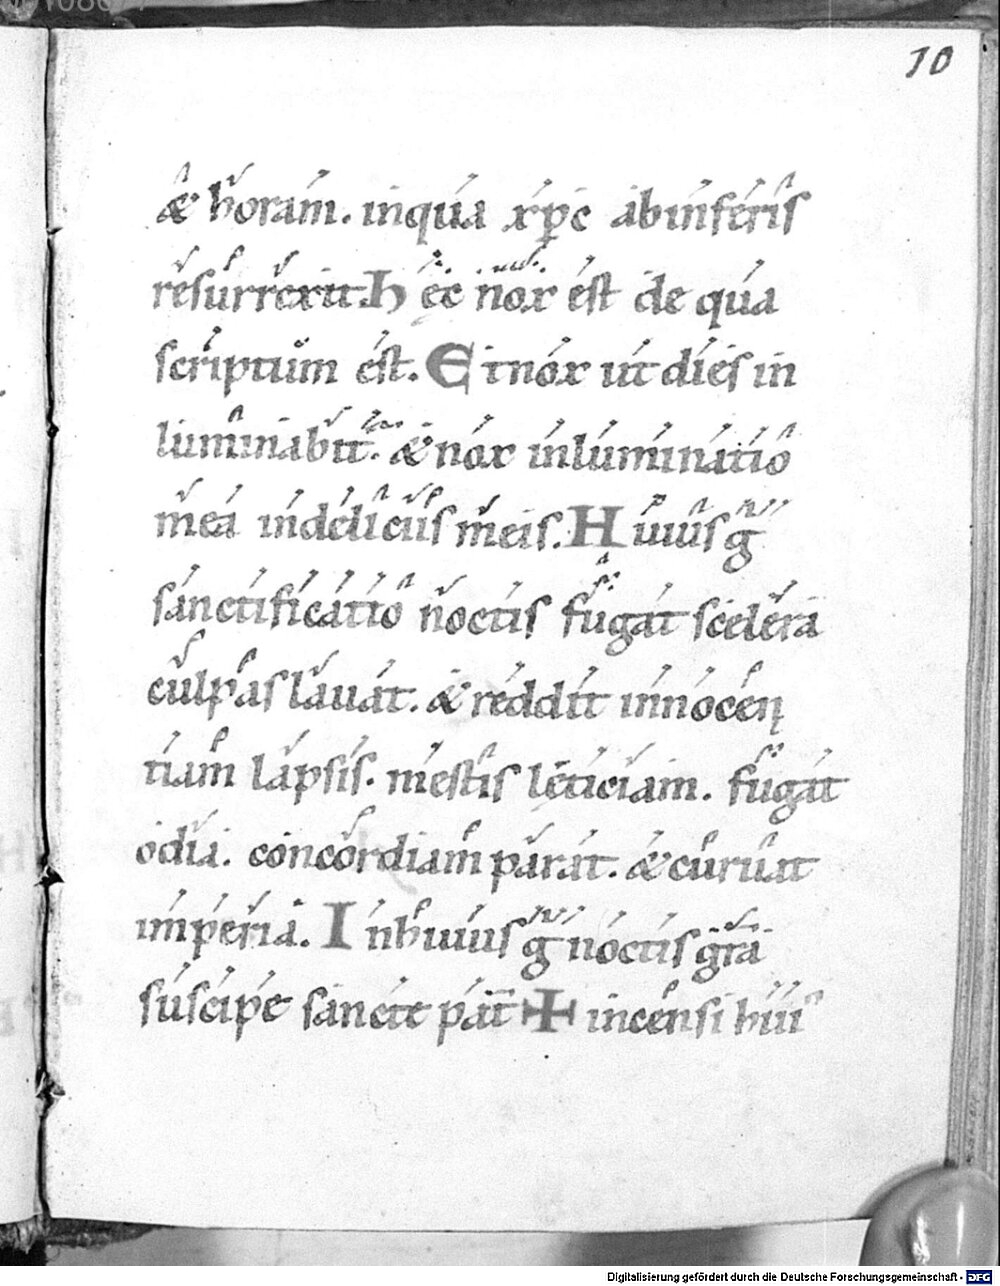 10
& horam. inqua xpc abinferis
resurrexit. Hęc nox est de qua
scriptum est. Et nox ut dies in
luminabit. & nox inluminatio
mea indeliciis meis. Huius g
sanctificatio noctis fugat scelera
culpas lauat. & reddit innocen
tiam lapsis. mestis lęticiam. fugat
odia. concordiam parat. & curuat
imperia. Inhuius g noctis gra
suscipe sancte pat + incensi hui
Digitalisierung gefördert durch die Deutsche Forschungsgemeinschaft - DFG